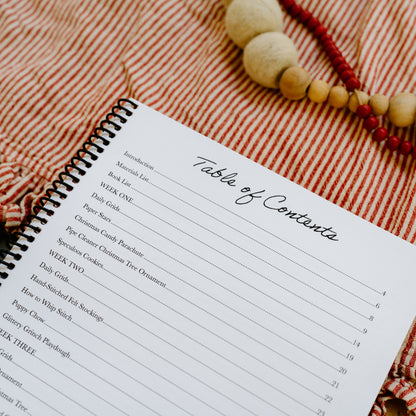 Table of Contents
Introduction 4
Materials List 6
Book List 8
WEEK ONE
Daily Grids 9
Paper Stars 14
Christmas Candy Parachute 19
Pipe Cleaner Christmas Tree Ornament 20
Speculoos Cookies 21
WEEK TWO 22
Daily Grids
Hand-Stitched Felt Stockings
How to Whip Stitch
Puppy Chow
Glittery Grinch Playdough
WEEK THREE
Grids
Ornament
Christmas Tree